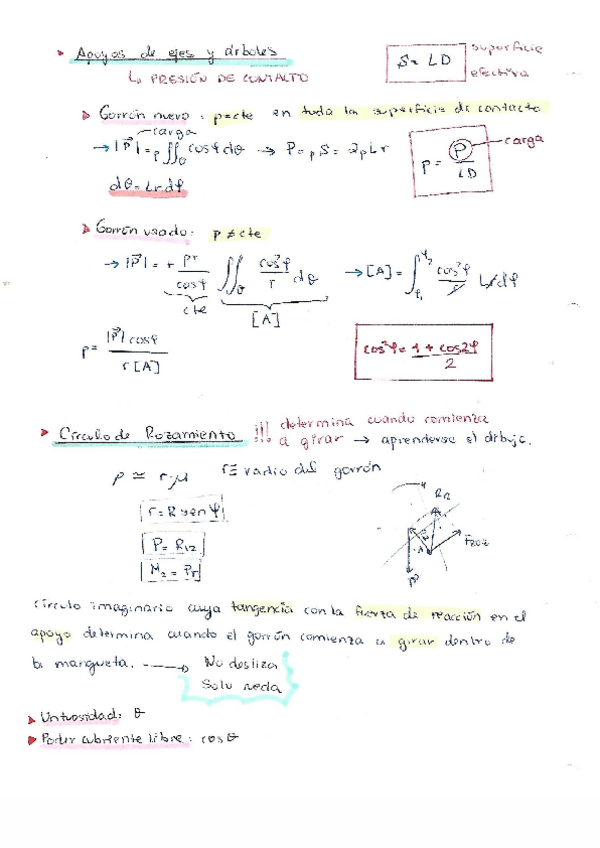 Apoyos de ejes y árboles
S = LD superficie efectiva
↳ PRESIÓN DE CONTACTO
Gorrón nuevo : p=cte en toda la superficie de contacto
carga
→ |P⃗| = p ∬_θ cosφ dθ → P = p S = 2pLr
p = P / LD carga
dθ = Lrdφ
Gorrón usado: p ≠ cte
→ |P⃗| = + pr / cosφ ∬_θ cos²φ / r dθ → [A] = ∫_φ₁^φ₂ cos²φ / r L r dφ
cte
[A]
p = |P⃗| cosφ / r [A]
cos²φ = 1 + cos2φ / 2
Círculo de Rozamiento !!! determina cuando comienza
a girar → aprenderse el dibujo.
ρ ≃ r·μ r ≡ radio del gorrón
r = R sen φ
P = R₁₂
M₂ = Pr
Círculo imaginario cuya tangencia con la fuerza de reacción en el
apoyo determina cuando el gorrón comienza a girar dentro de
la mangueta. ----→ No desliza
Solo rueda
Untuosidad: θ
Poder cubriente libre : cosθ